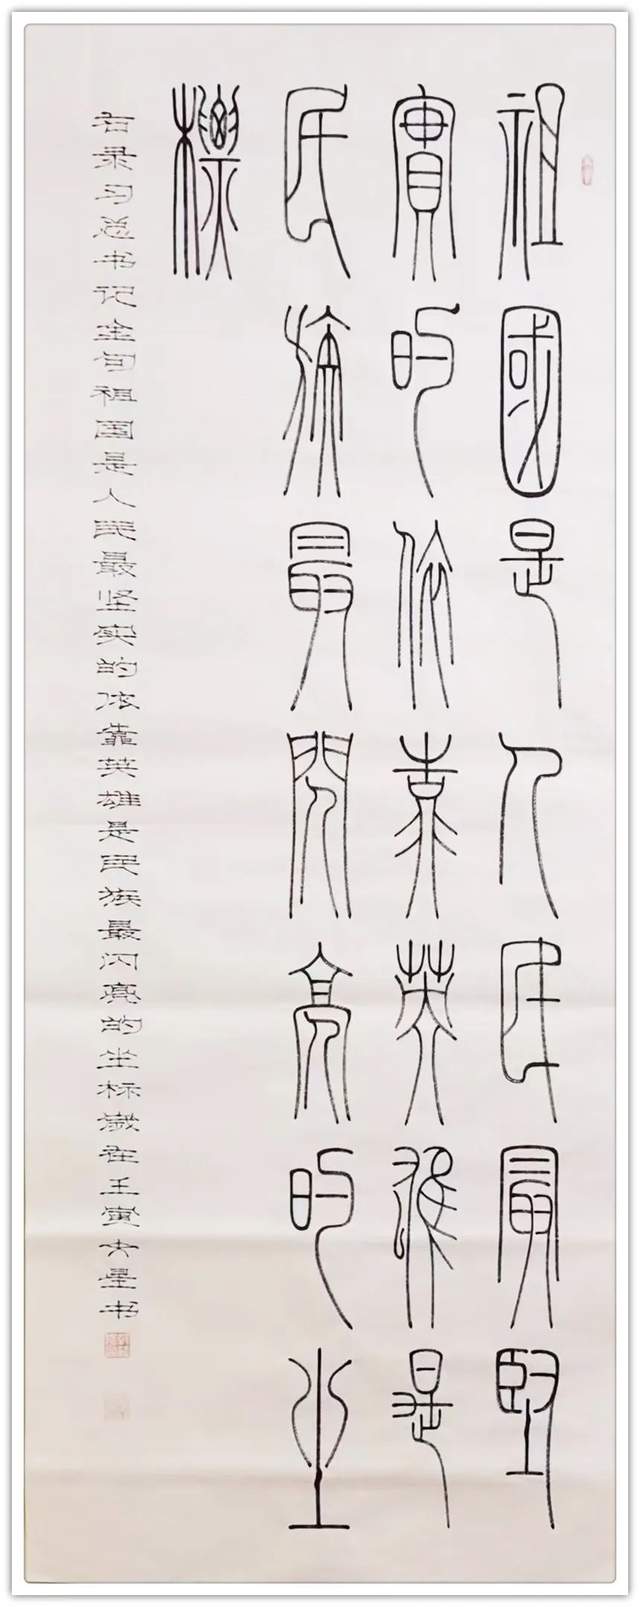 祖國是人民最堅
實的依靠英雄是
民族最閃亮的坐
標
右录习总书记金句祖国是人民最坚实的依靠英雄是民族最闪亮的坐标歲在壬寅星书